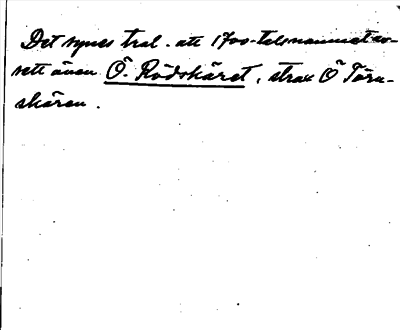 Det synes tral. att 1700-talsnamnet av-
sett även Ö. Rödskäret, strax Ö Tärn-
skären.